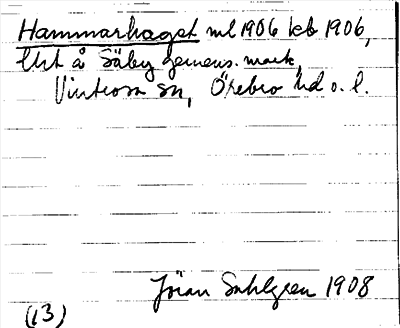 Hammarhaget ml 1906 leb 1906,
Urt å Säby gemens. mark,
Vintrosa sn, Örebro hd o. l.
Jöran Sahlgren 1908
(13)